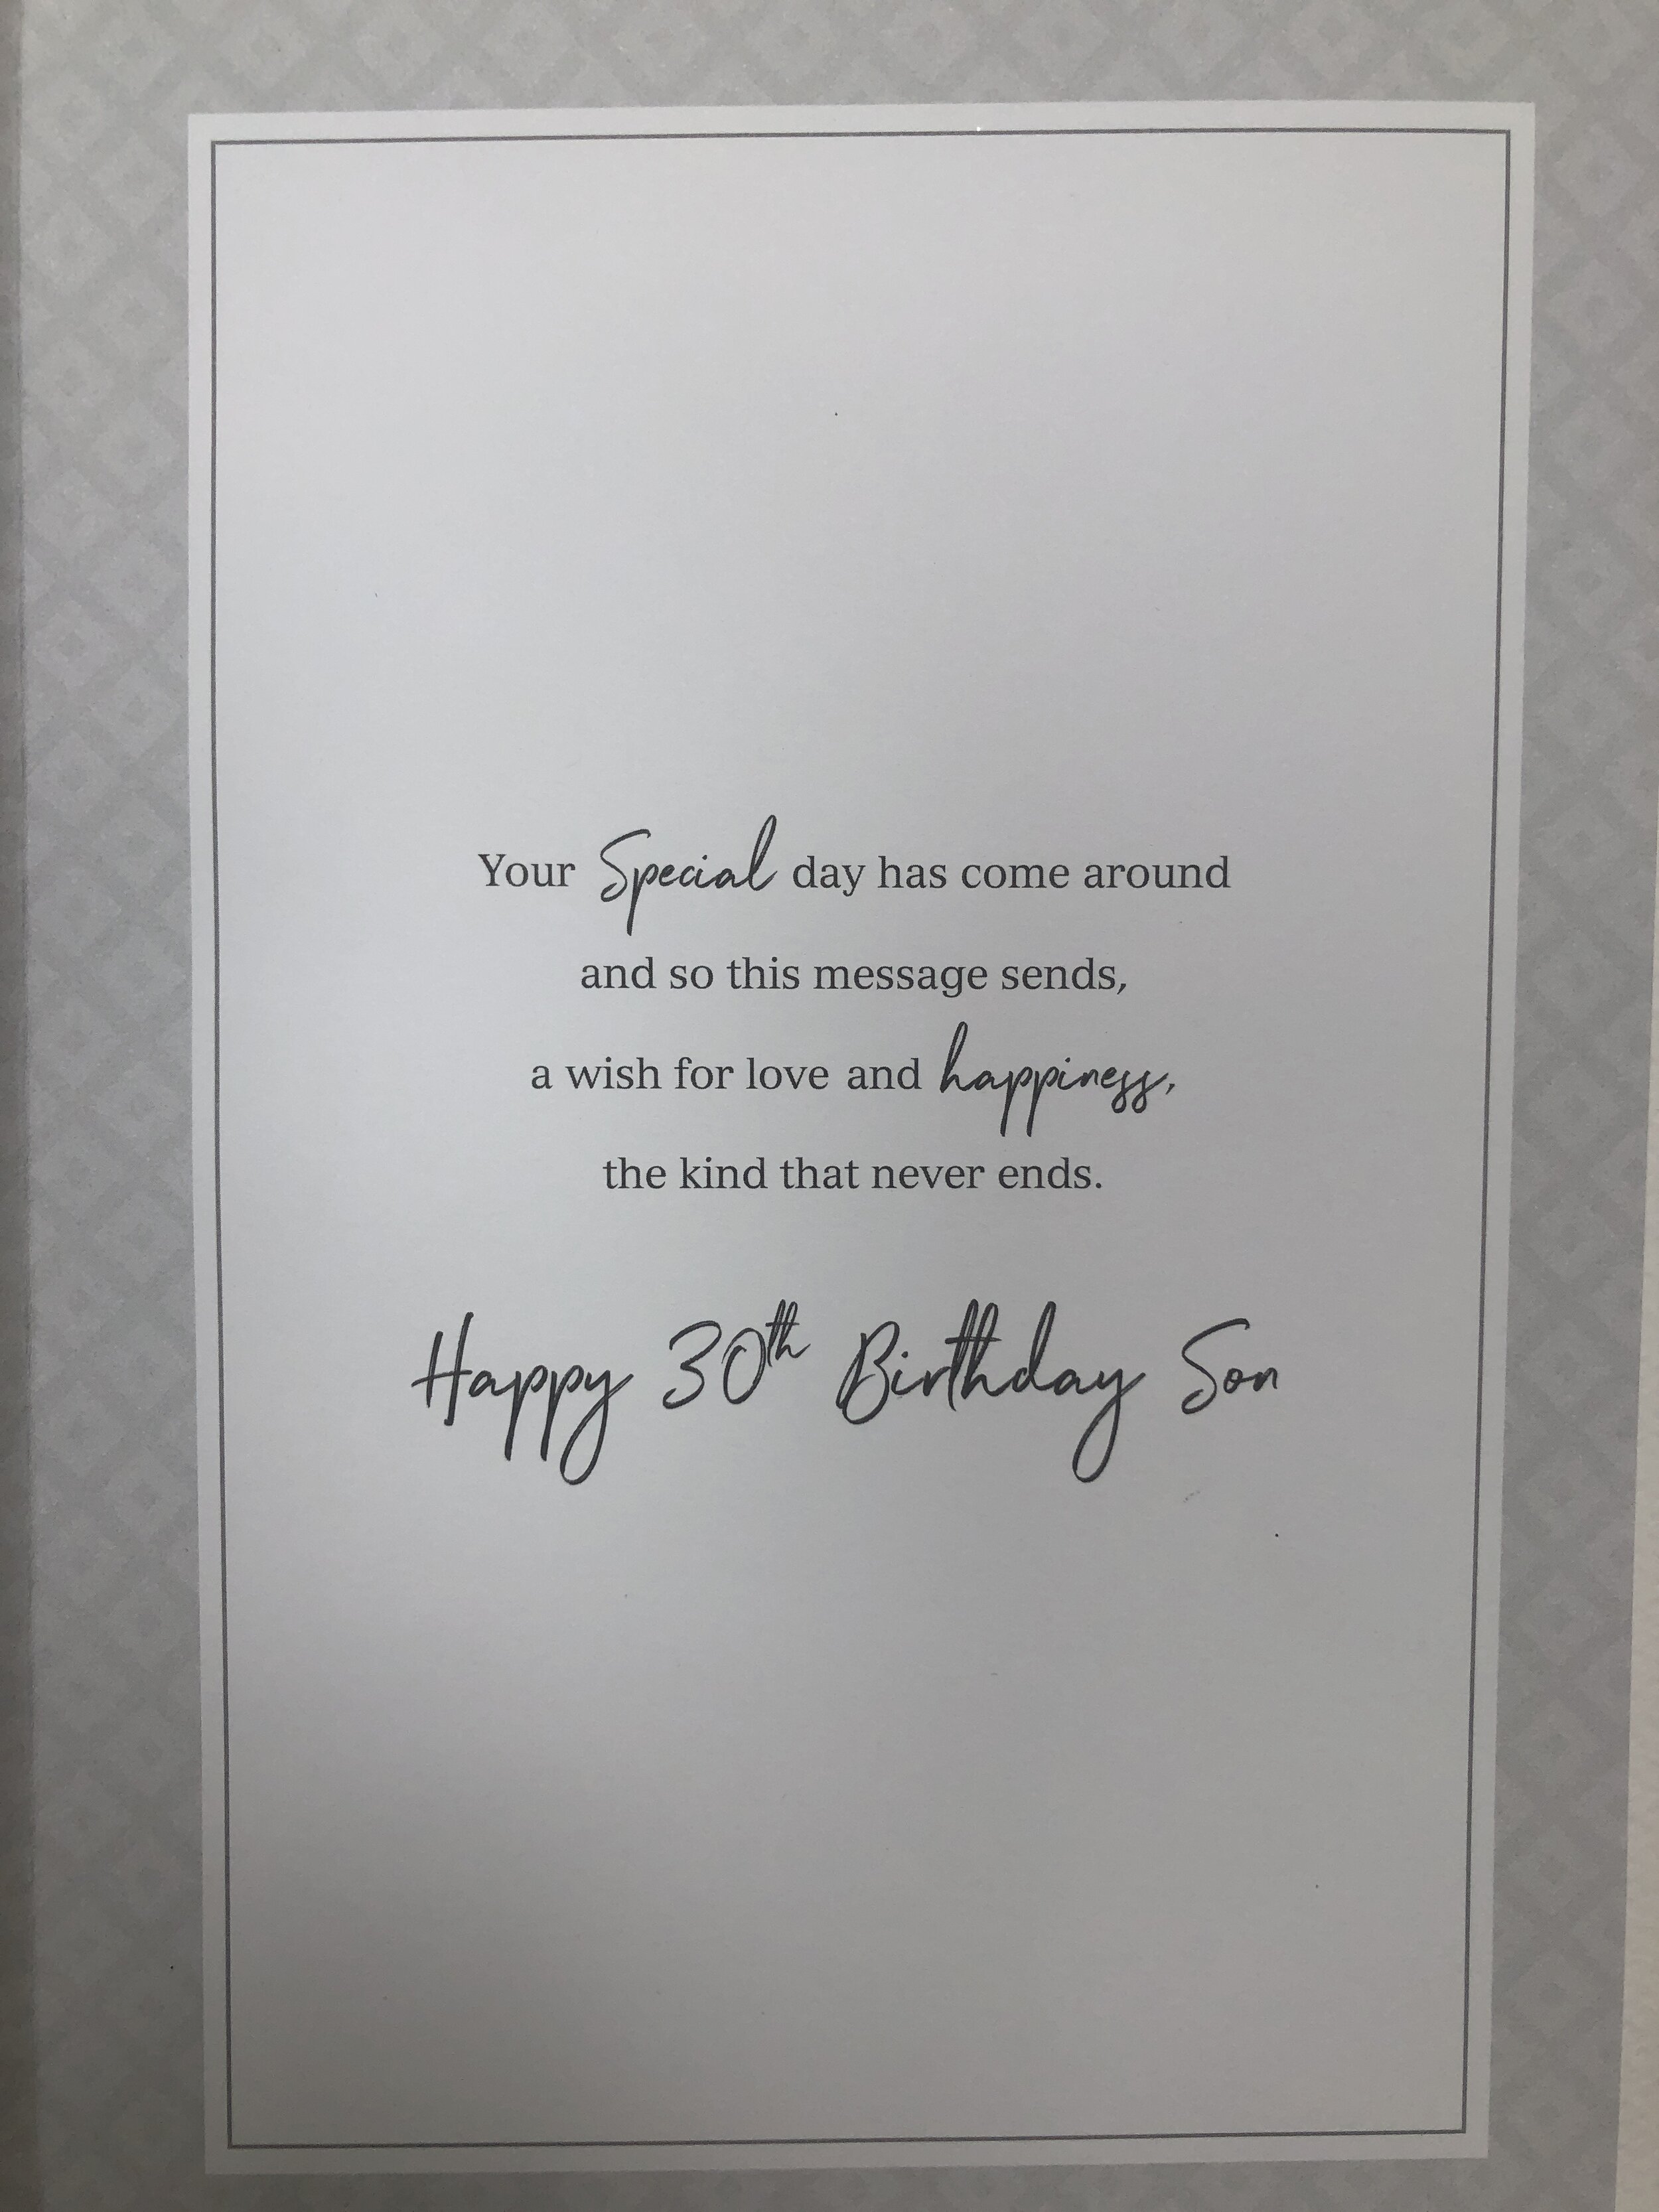 Your Special day has come around
and so this message sends,
a wish for love and happiness,
the kind that never ends.
Happy 30th Birthday Son